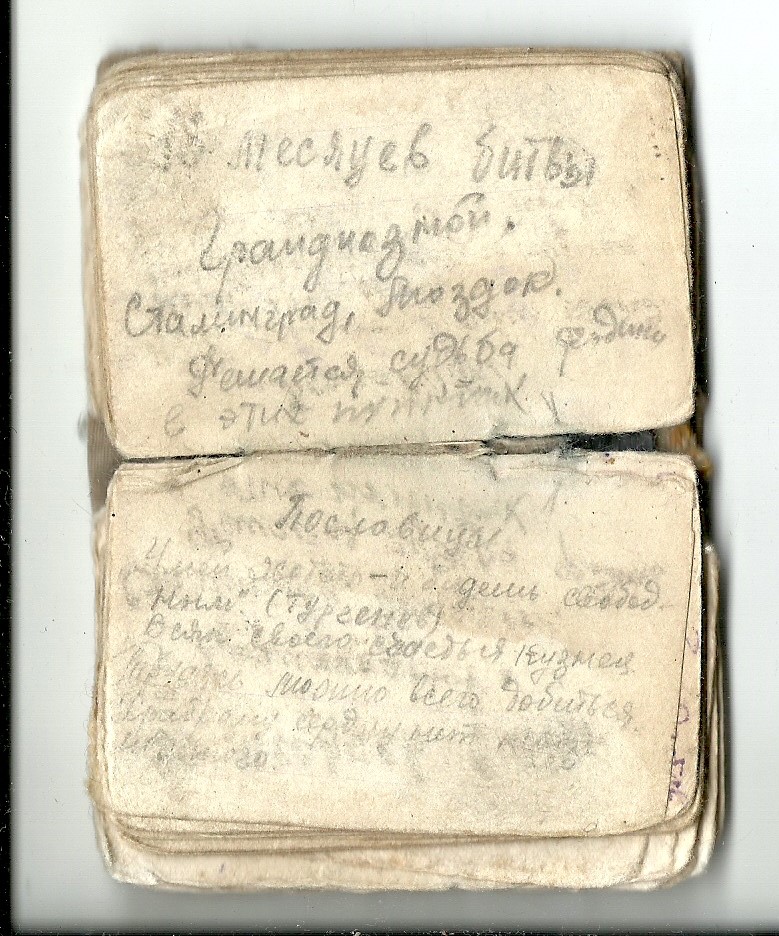 15 месяцев битвы
грандиозной.
Сталинград, Моздок.
Решается судьба родины
в этих пунктах
Пословицы
Умей хотеть – и будешь свобод-
ным" (Тургенев)
Всяк своего счастья кузнец
можно всего добиться.
Храброму сердцу нет ничего